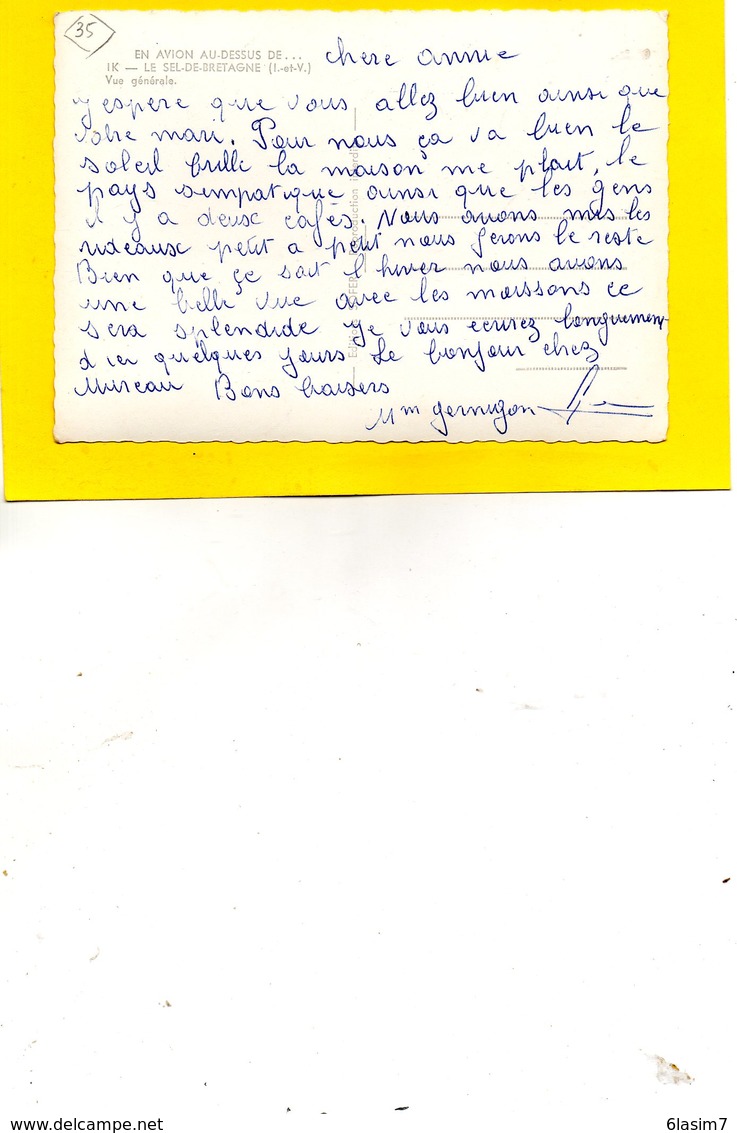 35
EN AVION AU-DESSUS DE...
IK — LE SEL-DE-BRETAGNE (I.-et-V.)
Vue générale.
chere annie
j'espere que vous allez bien ainsi que
votre mari. Pour nous ça va bien le
soleil brille la maison me plait, le
pays simpatique ainsi que les gens
il y a deux cafés. Nous avons mis les
rideaux petit a petit nous ferons le reste
Bien que ce soit l hiver nous avons
une belle vue avec les moissons ce
sera splendide je vous ecrirez longuement
d ici quelques jours Le bonjour chez
Mureau Bons baisers
Mm
6lasim7